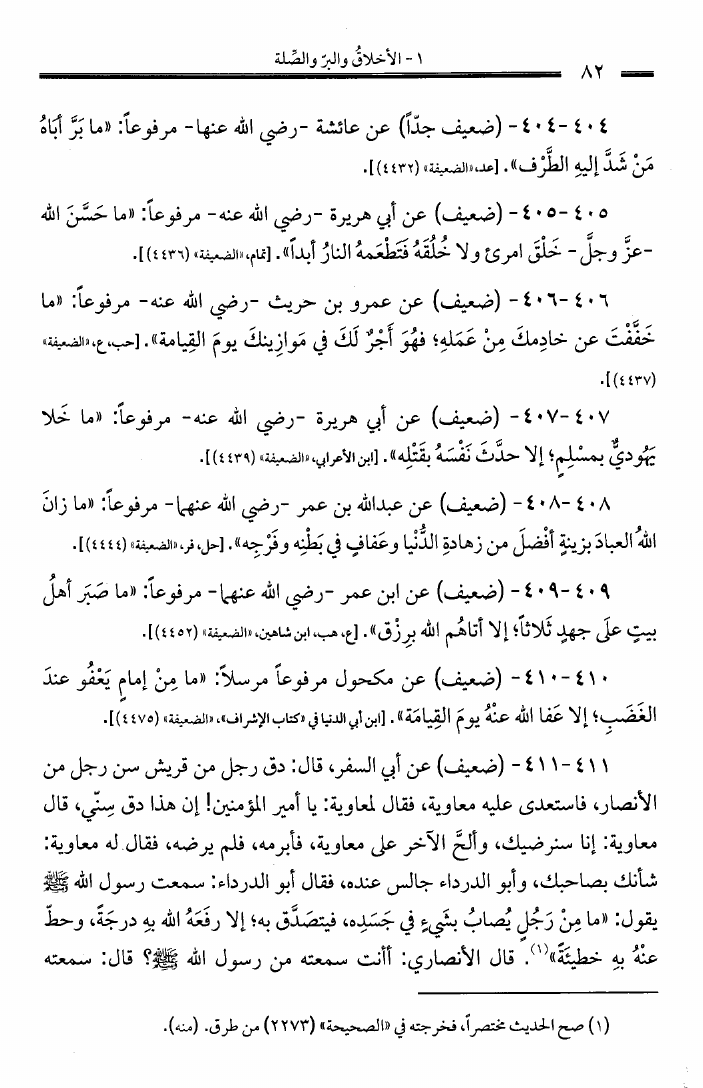 ١- الأخلاقُ والبرّ والصِّلة
٨٢
٤٠٤-٤٠٤- (ضعيف جدّاً) عن عائشة -رضي الله عنها- مرفوعاً: «ما بَرَّ أباهُ
مَنْ شَدَّ إليهِ الطَّرْف». [عد، «الضعيفة» (٤٤٣٢)].
٤٠٥-٤٠٥- (ضعيف) عن أبي هريرة -رضي الله عنه- مرفوعاً: «ما حَسَّنَ الله
-عزَّ وجلَّ- خَلْقَ امرئ ولا خُلُقَهُ فَتَطْعَمهُ النارُ أبداً». [تمام، «الضعيفة» (٤٤٣٦)].
٤٠٦-٤٠٦- (ضعيف) عن عمرو بن حريث -رضي الله عنه- مرفوعاً: «ما
خَفَّفْتَ عن خادِمكَ مِنْ عَمَلهِ؛ فهُوَ أَجْرٌ لَكَ في مَوازِينكَ يومَ القِيامة». [حب، ع، «الضعيفة»
(٤٤٣٧)].
٤٠٧-٤٠٧- (ضعيف) عن أبي هريرة -رضي الله عنه- مرفوعاً: «ما خَلا
يَهُوديٌّ بمسْلِمٍ؛ إلا حدَّثَ نَفْسَهُ بقَتْلِه». [ابن الأعرابي، «الضعيفة» (٤٤٣٩)].
٤٠٨-٤٠٨- (ضعيف) عن عبدالله بن عمر -رضي الله عنهما- مرفوعاً: «ما زانَ
اللهُ العبادَ بزينةٍ أفضلَ من زهادةِ الدُّنْيا وعَفافٍ في بَطْنِه وفَرْجِه». [حل، فر، «الضعيفة» (٤٤٤٤)].
٤٠٩-٤٠٩- (ضعيف) عن ابن عمر -رضي الله عنهما- مرفوعاً: «ما صَبَرَ أهلُ
بيتٍ علَى جهدٍ ثَلاثاً؛ إلا أتاهُم الله برِزْق». [ع، هب، ابن شاهين، «الضعيفة» (٤٤٥٢)].
٤١٠-٤١٠- (ضعيف) عن مكحول مرفوعاً مرسلاً: «ما مِنْ إمامٍ يَعْفُو عندَ
الغَضَبِ؛ إلا عَفا الله عنْهُ يومَ القِيامَة». [ابن أبي الدنيا في «كتاب الإشراف»، «الضعيفة» (٤٤٧٥)].
٤١١-٤١١- (ضعيف) عن أبي السفر، قال: دق رجل من قريش سن رجل من
الأنصار، فاستعدى عليه معاوية، فقال لمعاوية: يا أمير المؤمنين! إن هذا دق سِنّي، قال
معاوية: إنا سنرضيك، وألحَّ الآخر على معاوية، فأبرمه، فلم يرضه، فقال له معاوية:
شأنك بصاحبك، وأبو الدرداء جالس عنده، فقال أبو الدرداء: سمعت رسول الله ﷺ
يقول: «ما مِنْ رَجُلٍ يُصابُ بشَيءٍ في جَسَدِه، فيتصَدَّق به؛ إلا رفَعَهُ الله بِهِ درجَةً، وحطّ
عنْهُ بِهِ خطيئَةً»(١). قال الأنصاري: أأنت سمعته من رسول الله ﷺ؟ قال: سمعته
(١) صح الحديث مختصراً، فخرجته في «الصحيحة» (٢٢٧٣) من طرق. (منه).